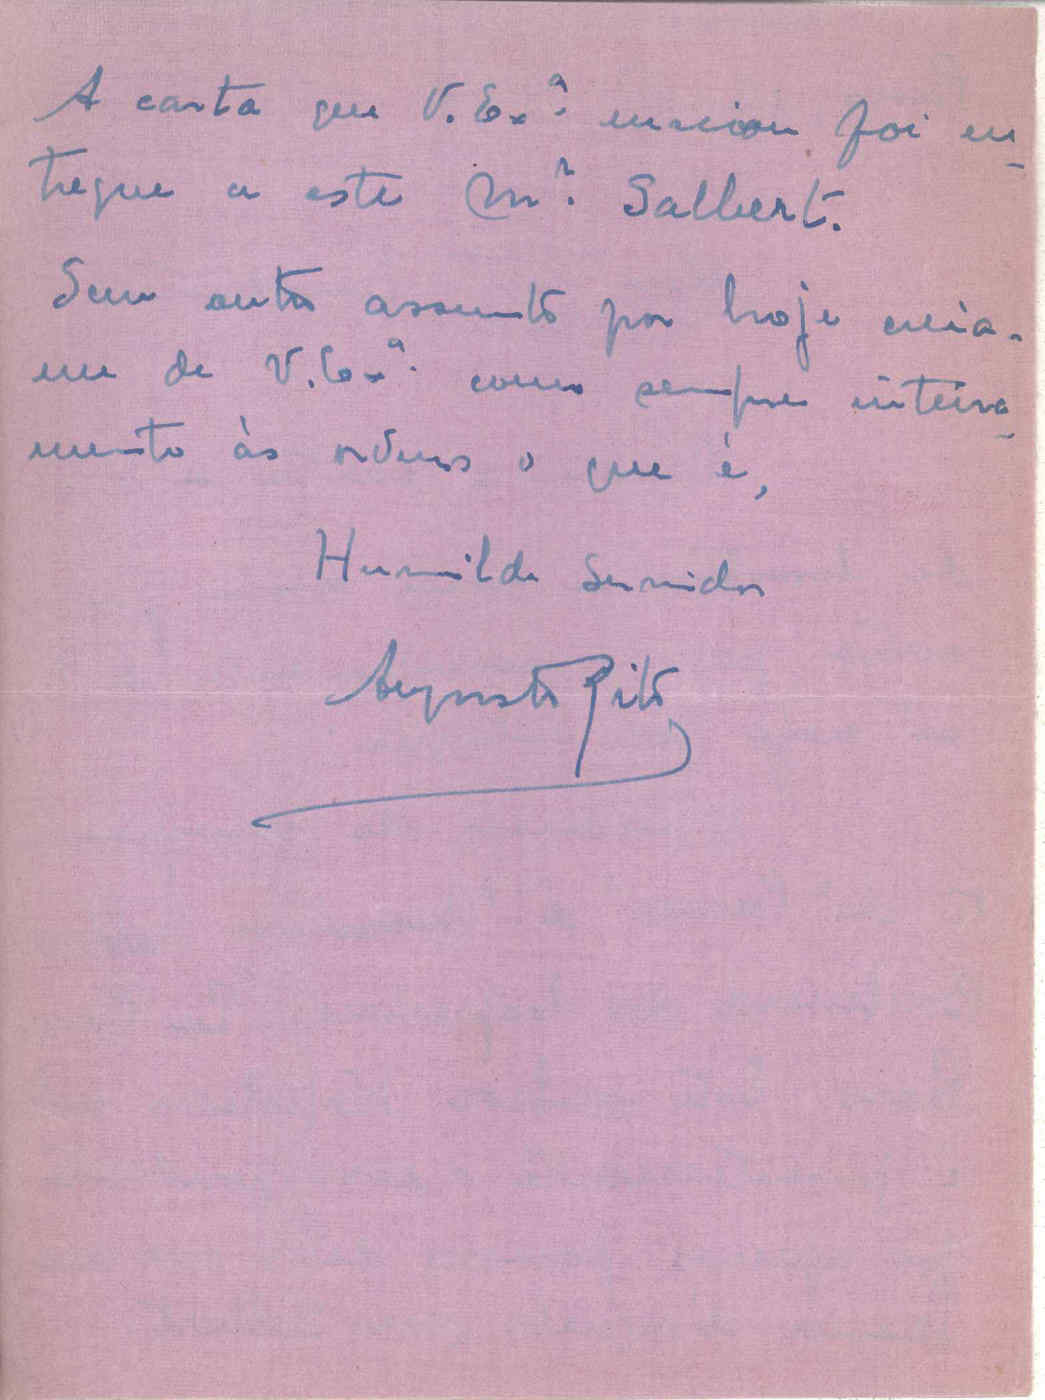 A carta que V. Ex.ª enviou foi en-
tregue a este Mr. Salbert.
Sem outro assunto por hoje creia-
me de V. Ex.ª como sempre inteira-
mente às ordens o que é,
Humilde Servidor
Augusto Pitt